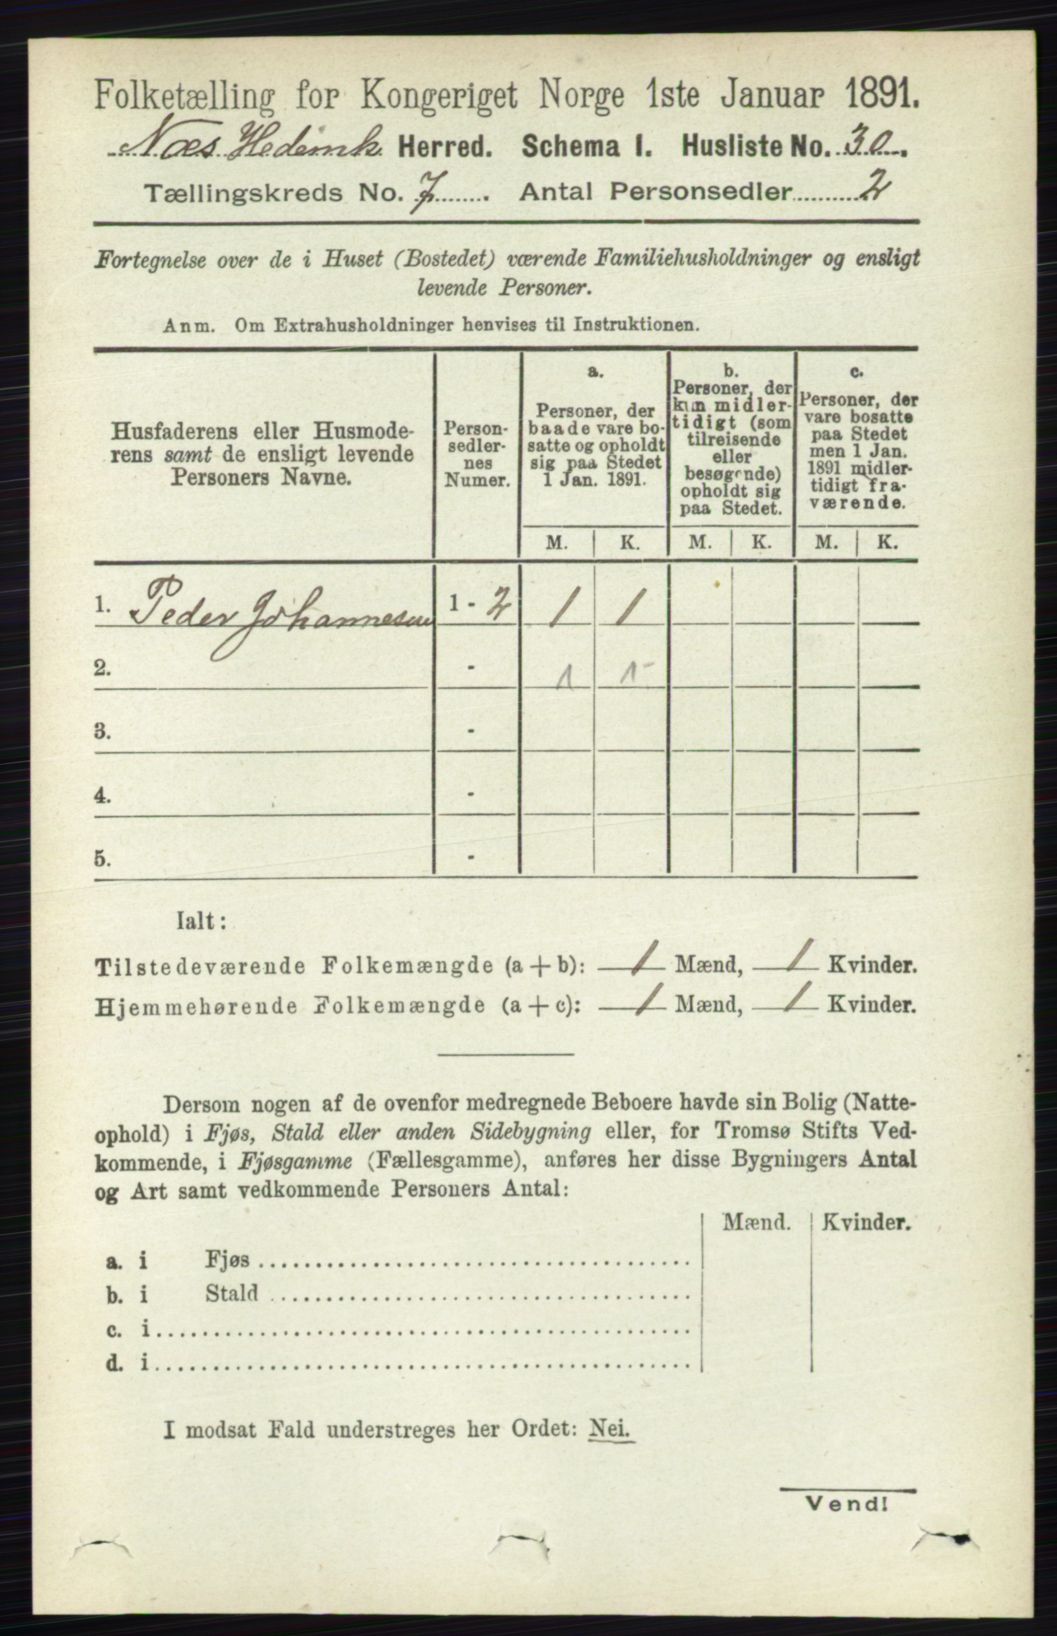 Folketælling for Kongeriget Norge 1ste Januar 1891.
Næs Hedemk. Herred. Schema I. Husliste No. 30.
Tællingskreds No. 7. Antal Personsedler 2
Fortegnelse over de i Huset (Bostedet) værende Familiehusholdninger og ensligt
levende Personer.
Anm. Om Extrahusholdninger henvises til Instruktionen.
Husfaderens eller Husmode-
rens samt de ensligt levende
Personers Navne.
Person-
sedler-
nes
Numer.
a.
Personer, der
baade vare bo-
satte og opholdt
sig paa Stedet
1 Jan. 1891.
b.
Personer, der
kun midler-
tidigt (som
tilreisende
eller
besøgende)
opholdt sig
paa Stedet.
c.
Personer, der
vare bosatte
paa Stedet
men 1 Jan.
1891 midler-
tidigt fra-
værende.
M. K. M. K. M. K.
1. Peder Johannesen 1 - 2 1 1
2. - 1 1-
3. -
4. -
5. -
Ialt:
Tilstedeværende Folkemængde (a + b): 1 Mænd, 1 Kvinder.
Hjemmehørende Folkemængde (a + c): 1 Mænd, 1 Kvinder.
Dersom nogen af de ovenfor medregnede Beboere havde sin Bolig (Natte-
ophold) i Fjøs, Stald eller anden Sidebygning eller, for Tromsø Stifts Ved-
kommende, i Fjøsgamme (Fællesgamme), anføres her disse Bygningers Antal
og Art samt vedkommende Personers Antal:
Mænd. Kvinder.
a. i Fjøs
b. i Stald
c. i
d. i
I modsat Fald understreges her Ordet: Nei.
Vend!